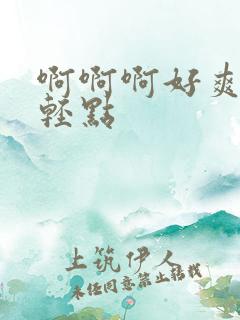 啊啊啊好爽
轻點
土筑伊人
未经同意禁止转载